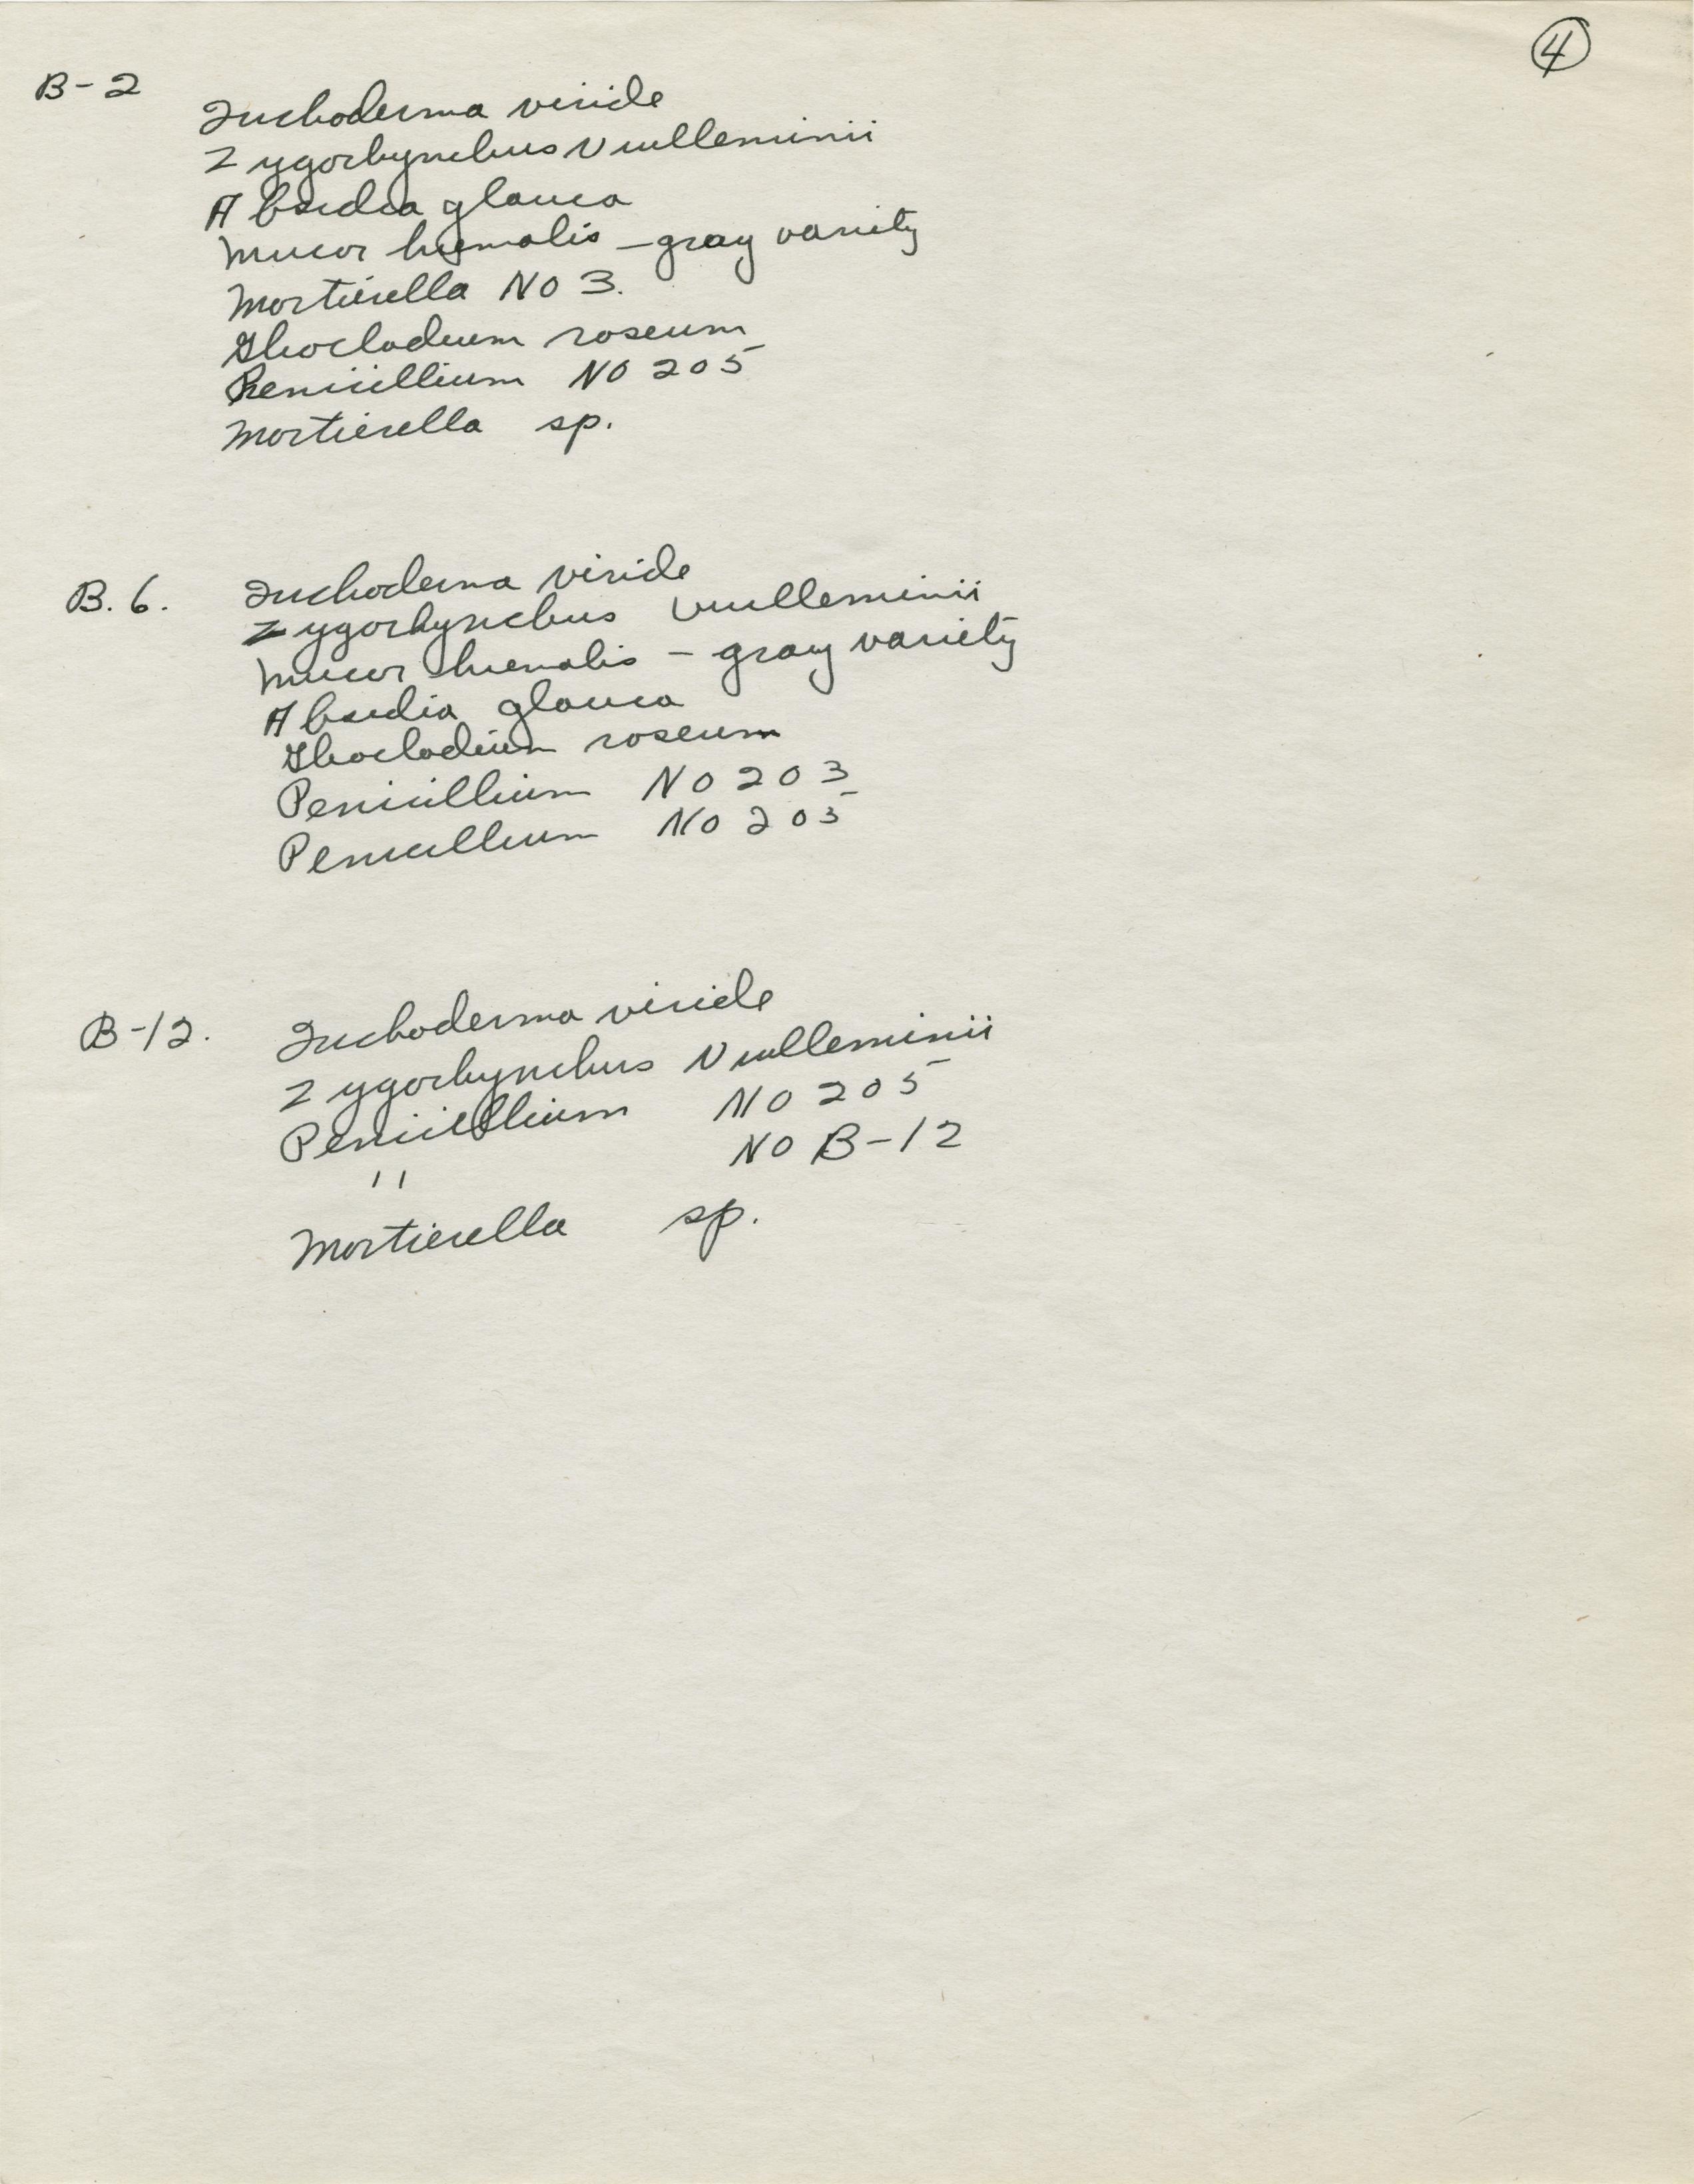 4
B-2 Trichoderma viride
Zygorhynchus Vuilleminii
Absidia glauca
Mucor hiemalis - gray variety
Mortierella NO 3.
Gliocladium roseum
Penicillium NO 205
Mortierella sp.
B.6. Trichoderma viride
Zygorhynchus Vuilleminii
Mucor hiemalis - gray variety
Absidia glauca
Gliocladium roseum
Penicillium NO 203
Penicillium NO 205
B-12. Trichoderma viride
Zygorhynchus Vuilleminii
Penicillium NO 205
" NO B-12
Mortierella sp.